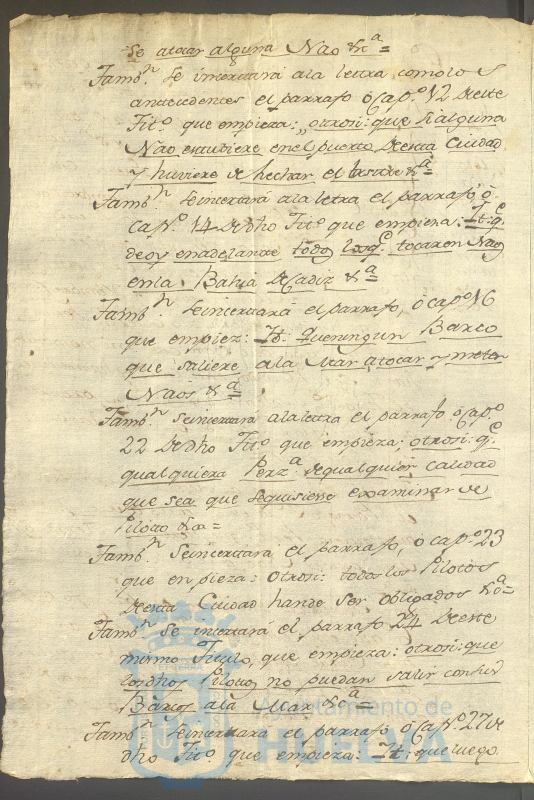 Se atocar alguna Nao &ª=
Tambⁿ. Se incertará ala letra como los
antecedentes el parrafo o Capº. 12 de este
Titº. que empieza: otrosi: que si alguna
Nao estuviere en el puerto de esta Ciudad
y huviere de hechar el lastre &ª=
Tambⁿ. Se incertará ala letra el parrafo, o
Capº. 14 de dho Titº que empieza: It: q.e
deoy enadelante todos los q.e tocaren Naos
en la Bahia de Cadiz &ª=
Tambⁿ. Se incertará el parrafo, ó capº 16
que empiez: It. Que ningun Barco
que saliere ala Mar atocar y meter
Naos &ª=
Tambⁿ. Se incertará ala letra el parrafo ó capº
22 de dho Titº que empieza: otrosi: q.e
qualquiera Perzª. de qualquier calidad
que sea que sequisiere examinar de
Piloto &a=
Tambⁿ. Se incertará el parrafo, ó capº 23
que enpieza: otrosi: todos los Pilotos
de esta Ciudad hande Ser obligados &ª=
Tambⁿ Se incertará el parrafo 24 de este
mismo Titulo, que empieza: otrosi: que
los dhos Pilotos no puedan salir con sus
Barcos ala Mar &ª=
Tambⁿ. Se incertara el parrafo ó Capº. 27 de
dho Titº que empieza: It: que luego
Ayuntamiento de
HUELVA